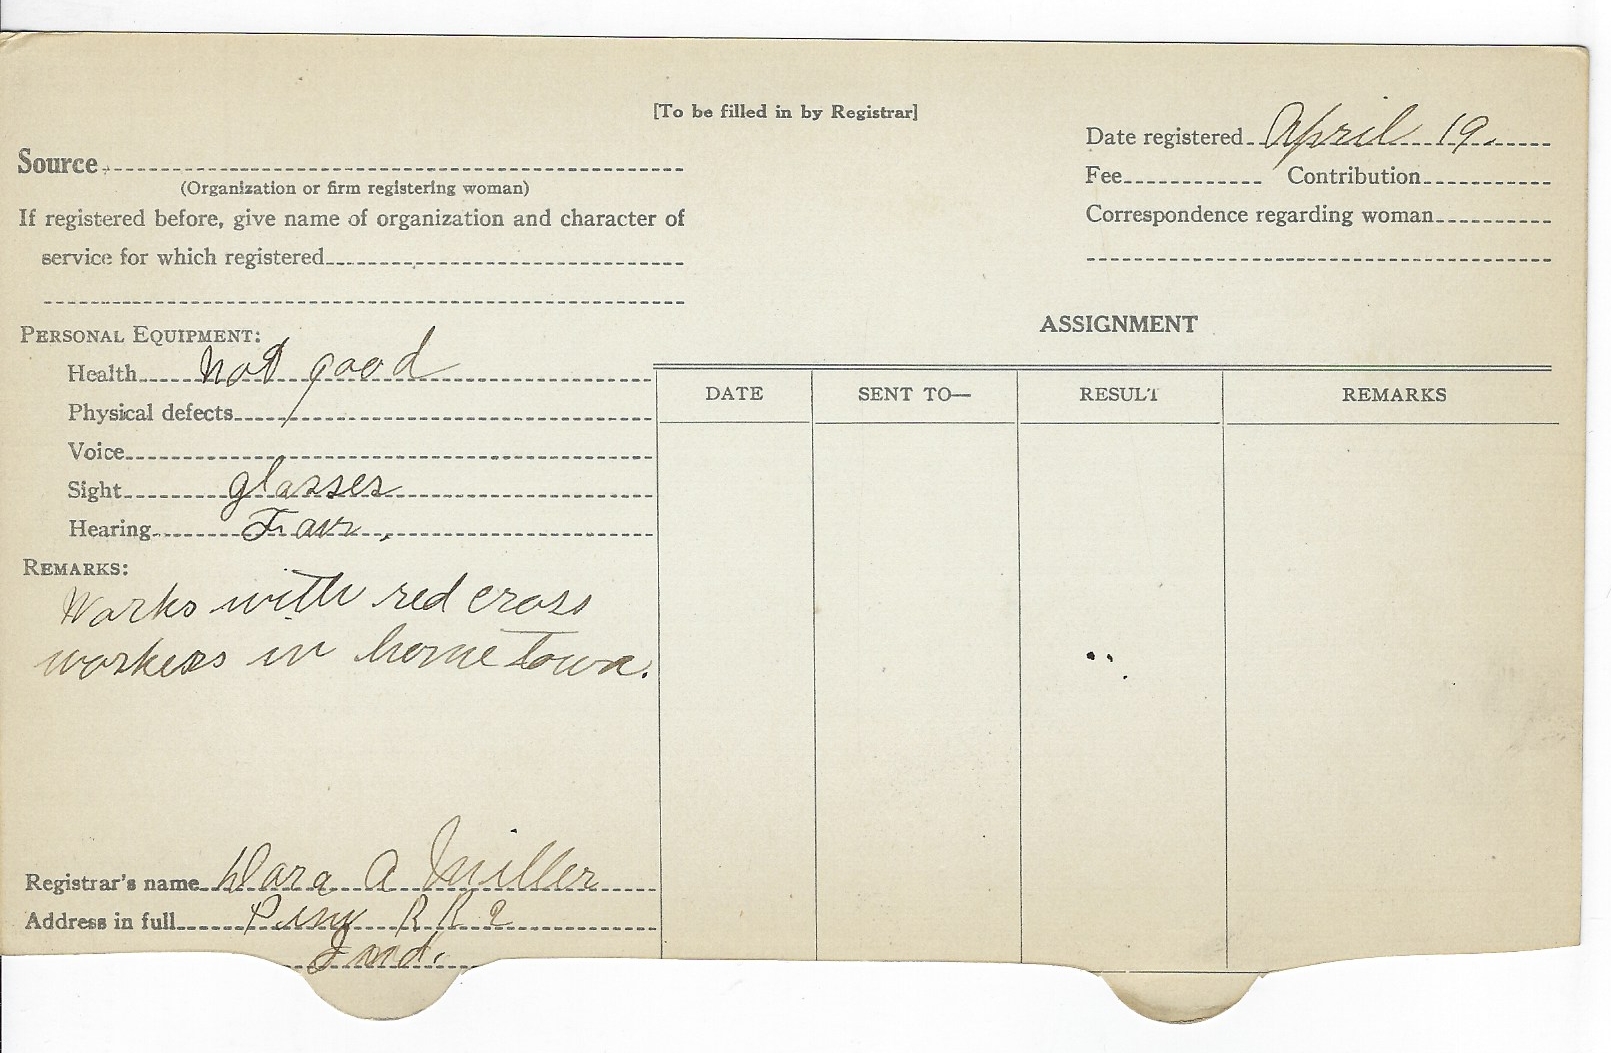 [To be filled in by Registrar]
Date registered April 19.
Source
(Organization or firm registering woman)
Fee Contribution
If registered before, give name of organization and character of
Correspondence regarding woman
service for which registered
PERSONAL EQUIPMENT:
ASSIGNMENT
Health not good
DATE SENT TO— RESULT REMARKS
Physical defects
Voice
Sight glasses
Hearing Fair,
REMARKS:
Works with red cross
workers in home town.
Registrar's name Dora A Miller
Address in full R R 2
Ind.